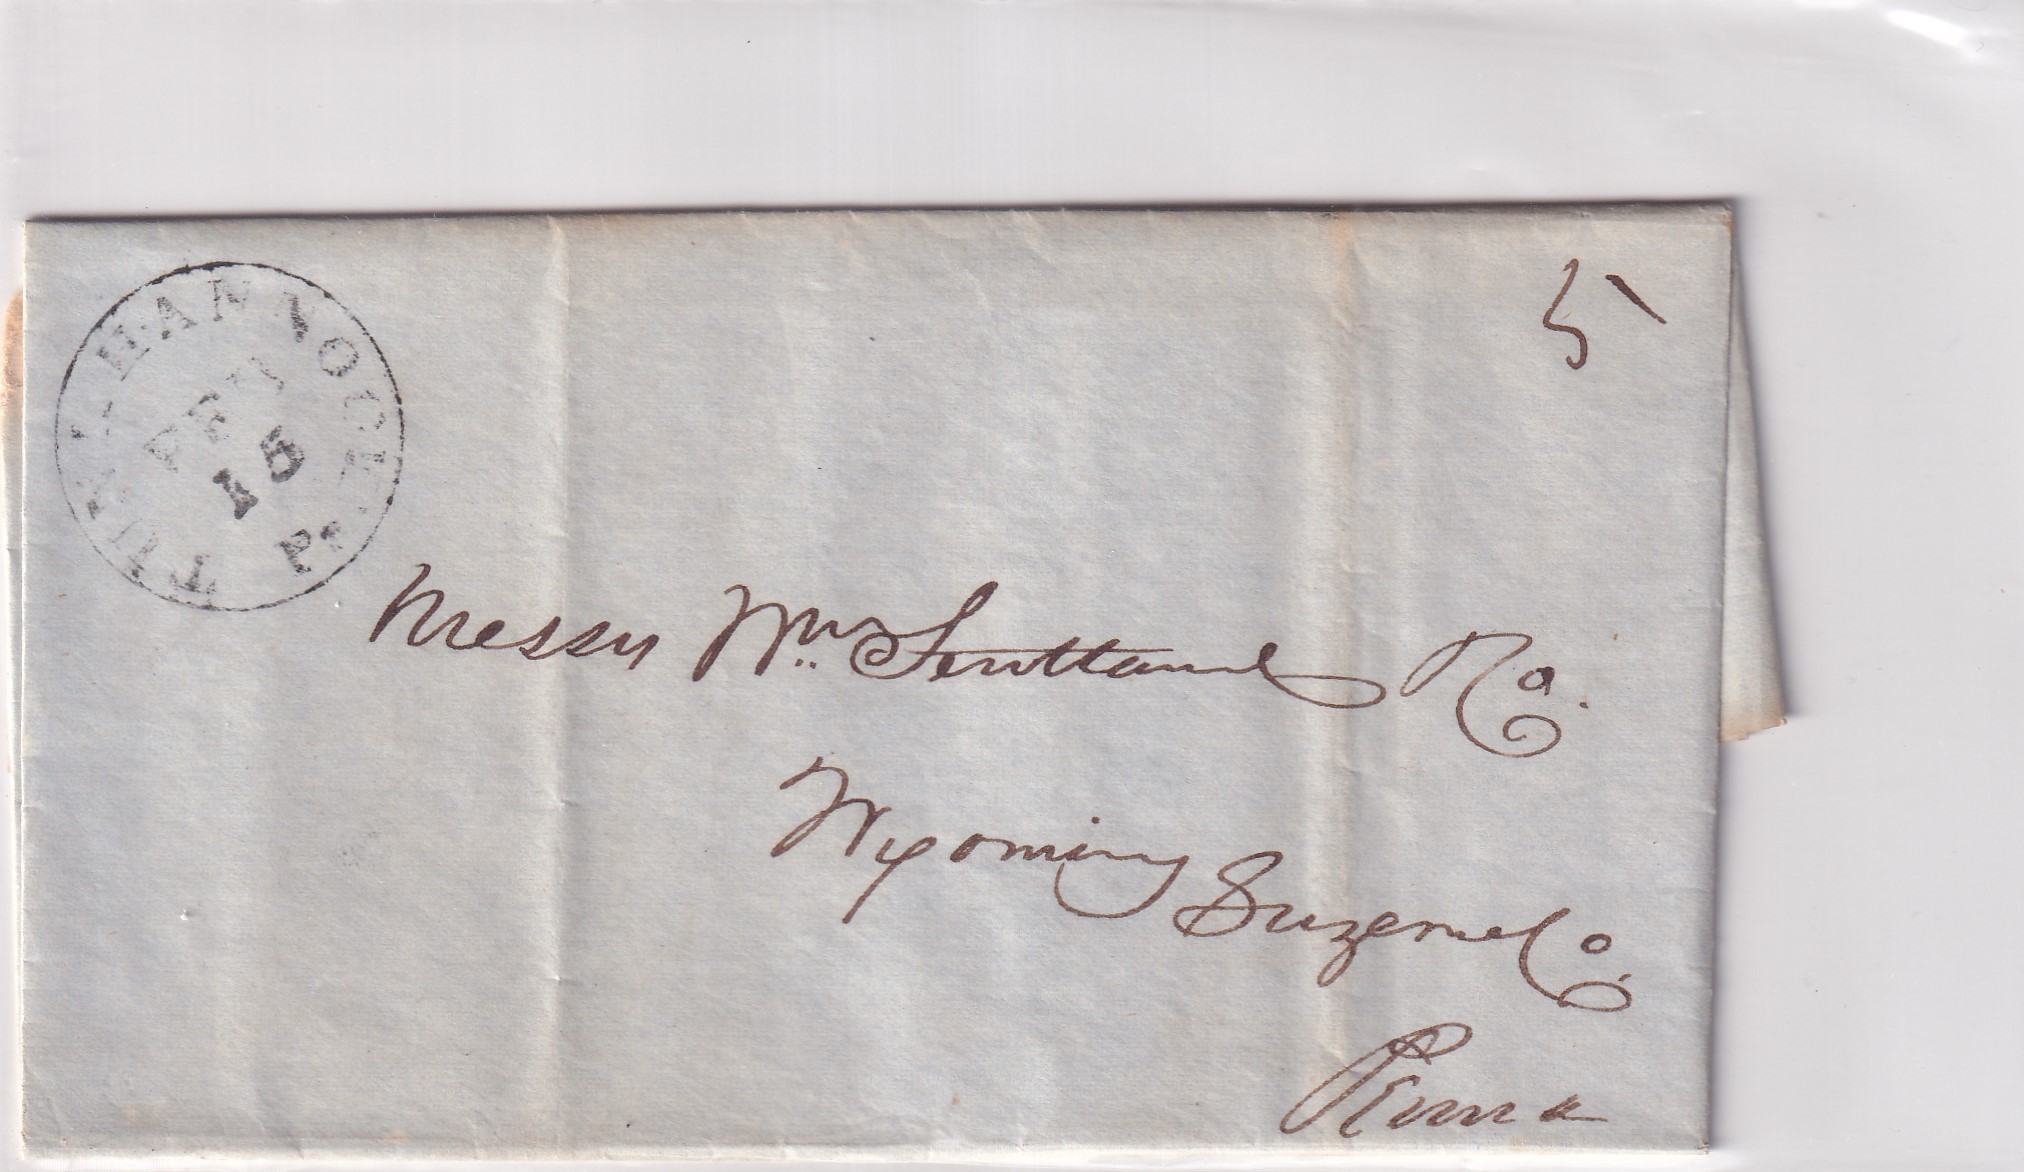 TUNKHANNOCK Pa.
FEB
15
5
Messrs Wm. Swetland Co.
Wyoming Luzerne Co.
Penna